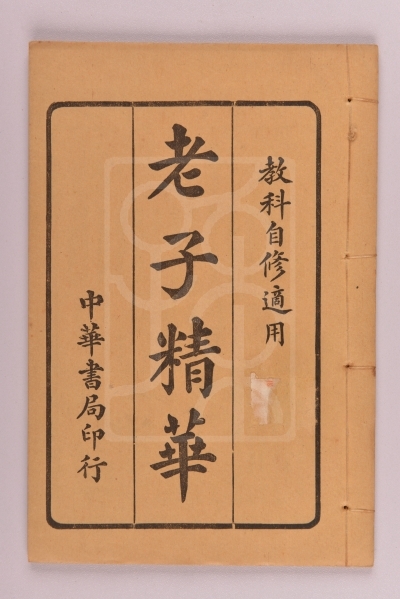 教科自修適用
老子精華
中華書局印行